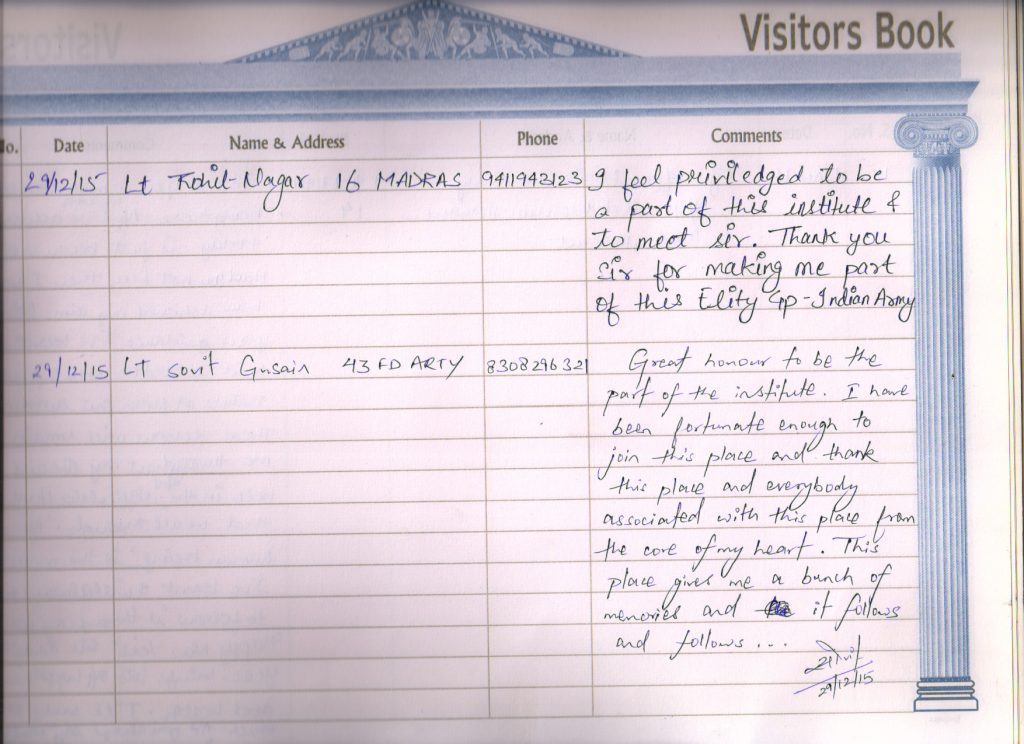 Visitors Book
No. Date Name & Address Phone Comments
29/12/15 Lt Rohit Nagar 16 MADRAS 9411943123 I feel priviledged to be
a part of this institute &
to meet sir. Thank you
Sir for making me part
of this Elity Gp - Indian Army
29/12/15 LT Sovit Gusain 43 FD ARTY 8308296321 Great honour to be the
part of the institute. I have
been fortunate enough to
join this place and thank
this place and everybody
associated with this place from
the core of my heart. This
place gives me a bunch of
memories and it follows
and follows...
29/12/15